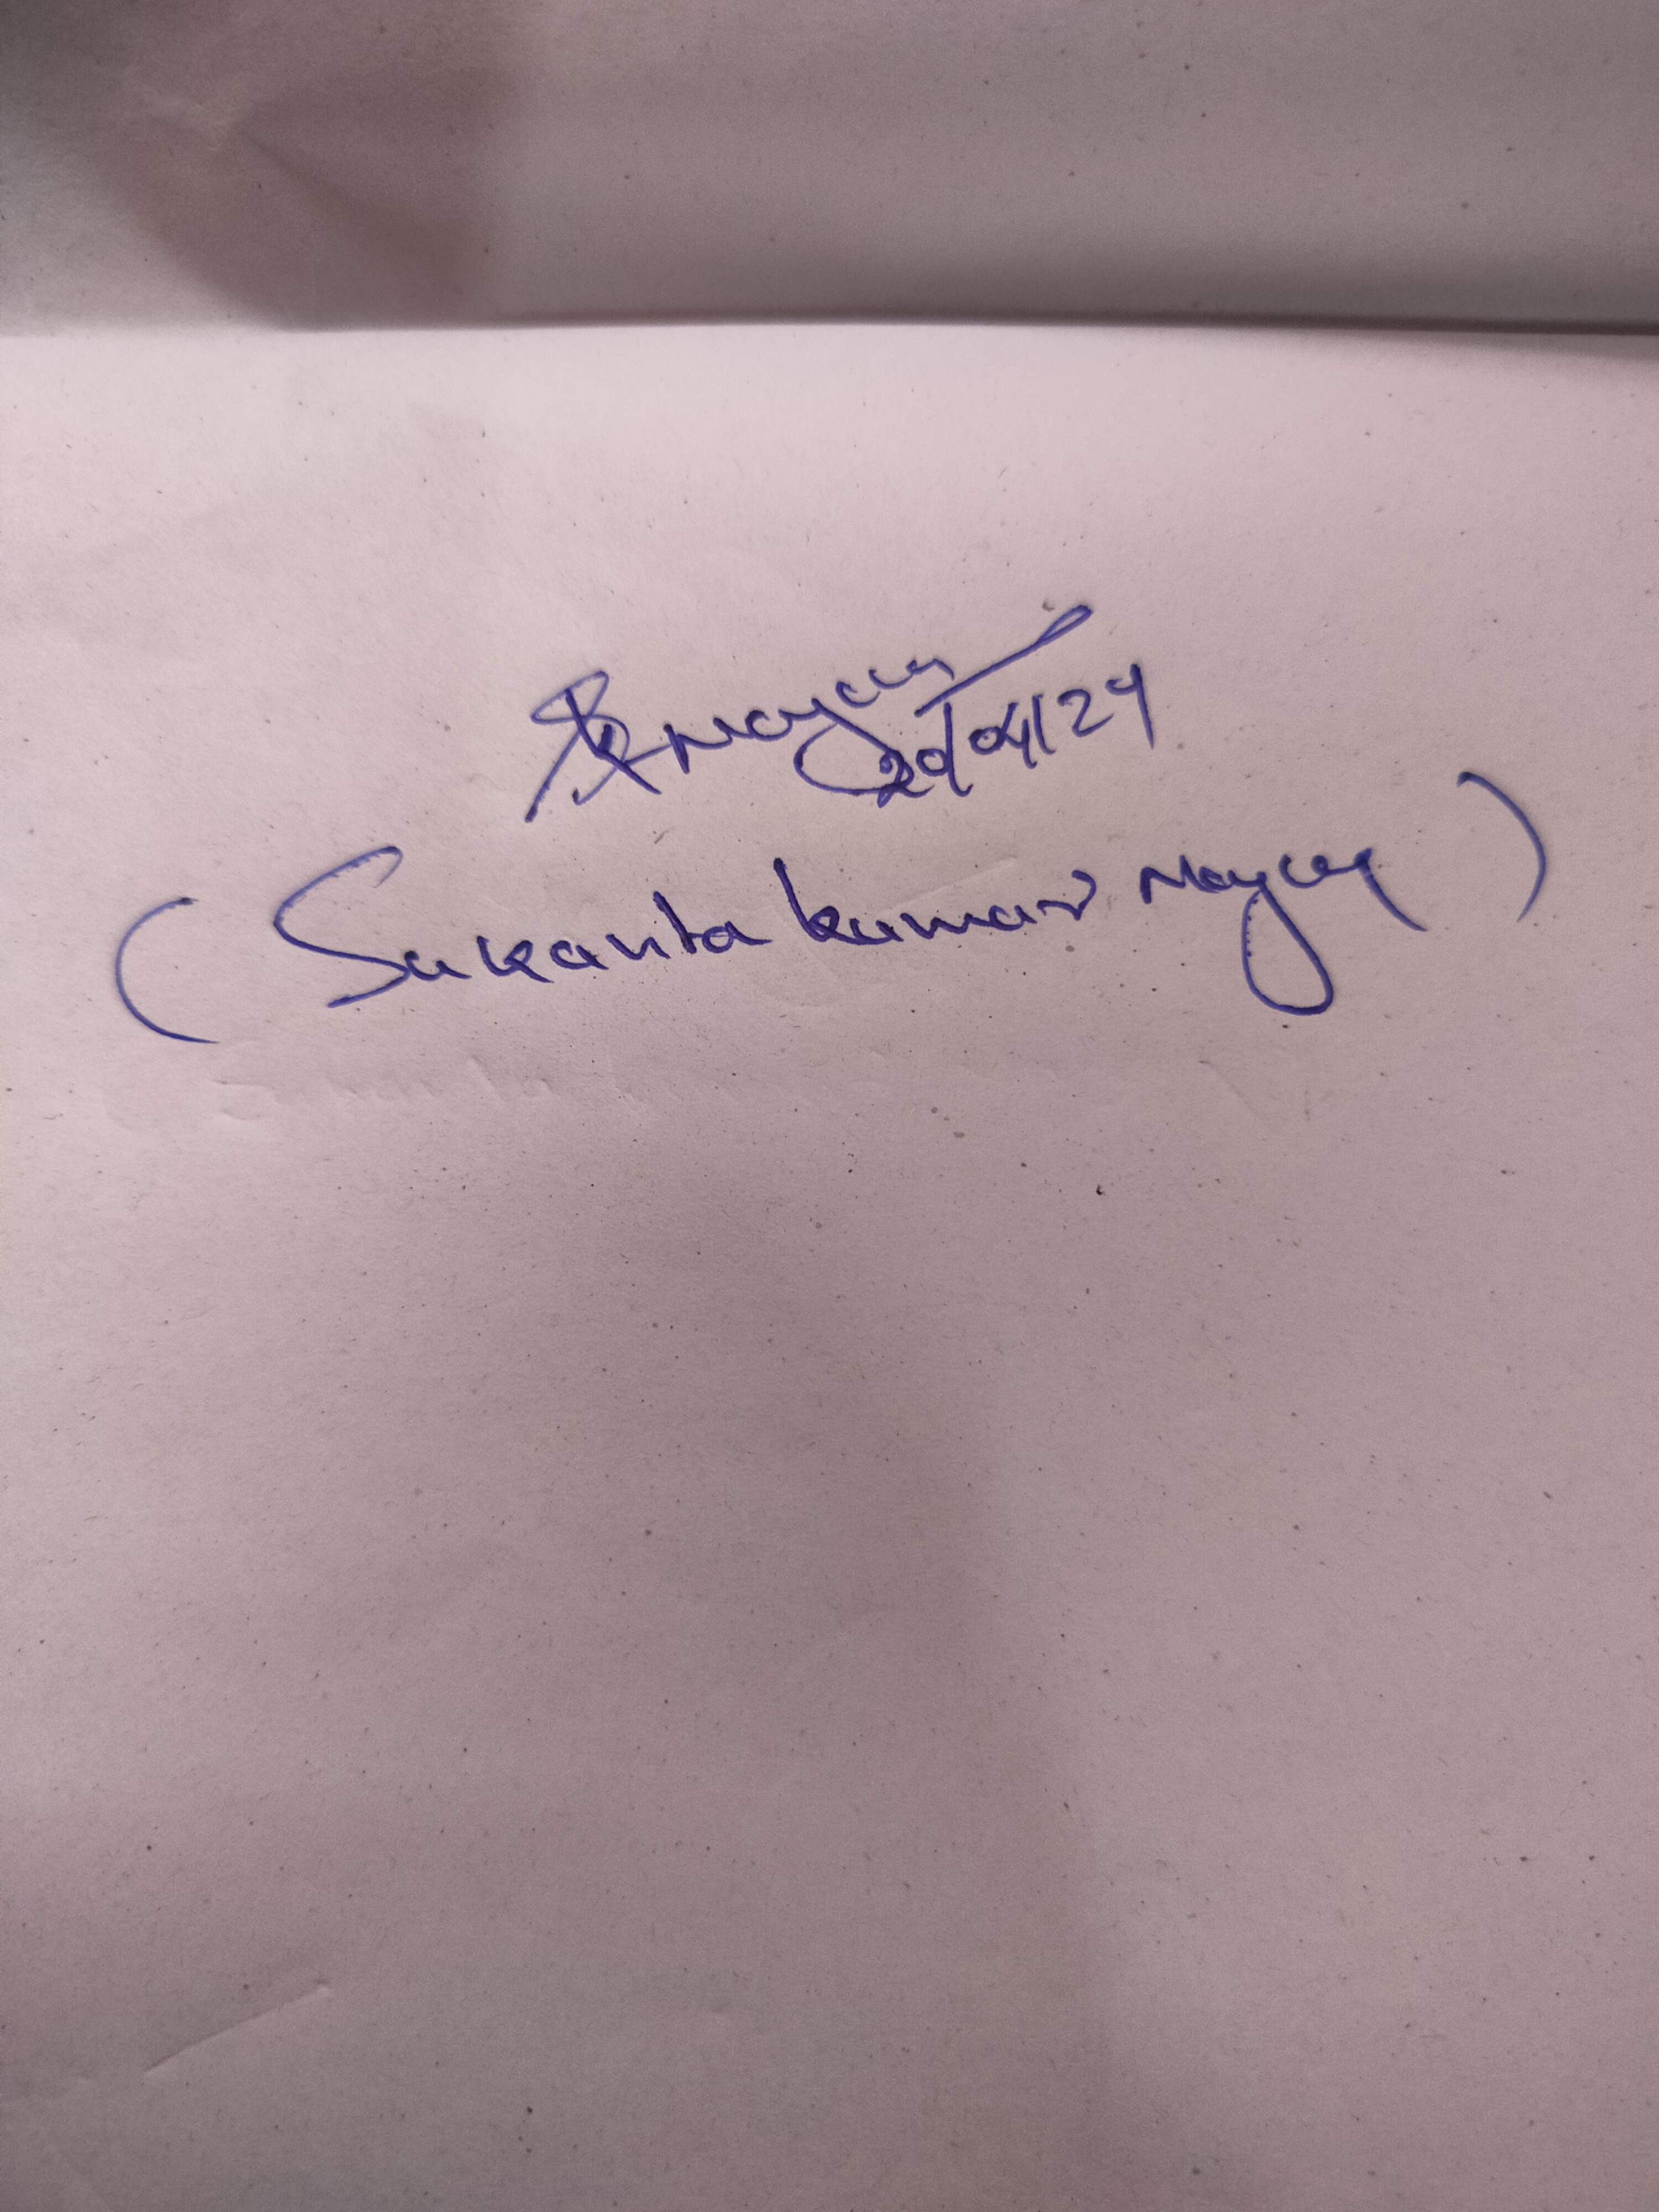 SKNayak
20/04/24
(Sukanta kumar Nayak)